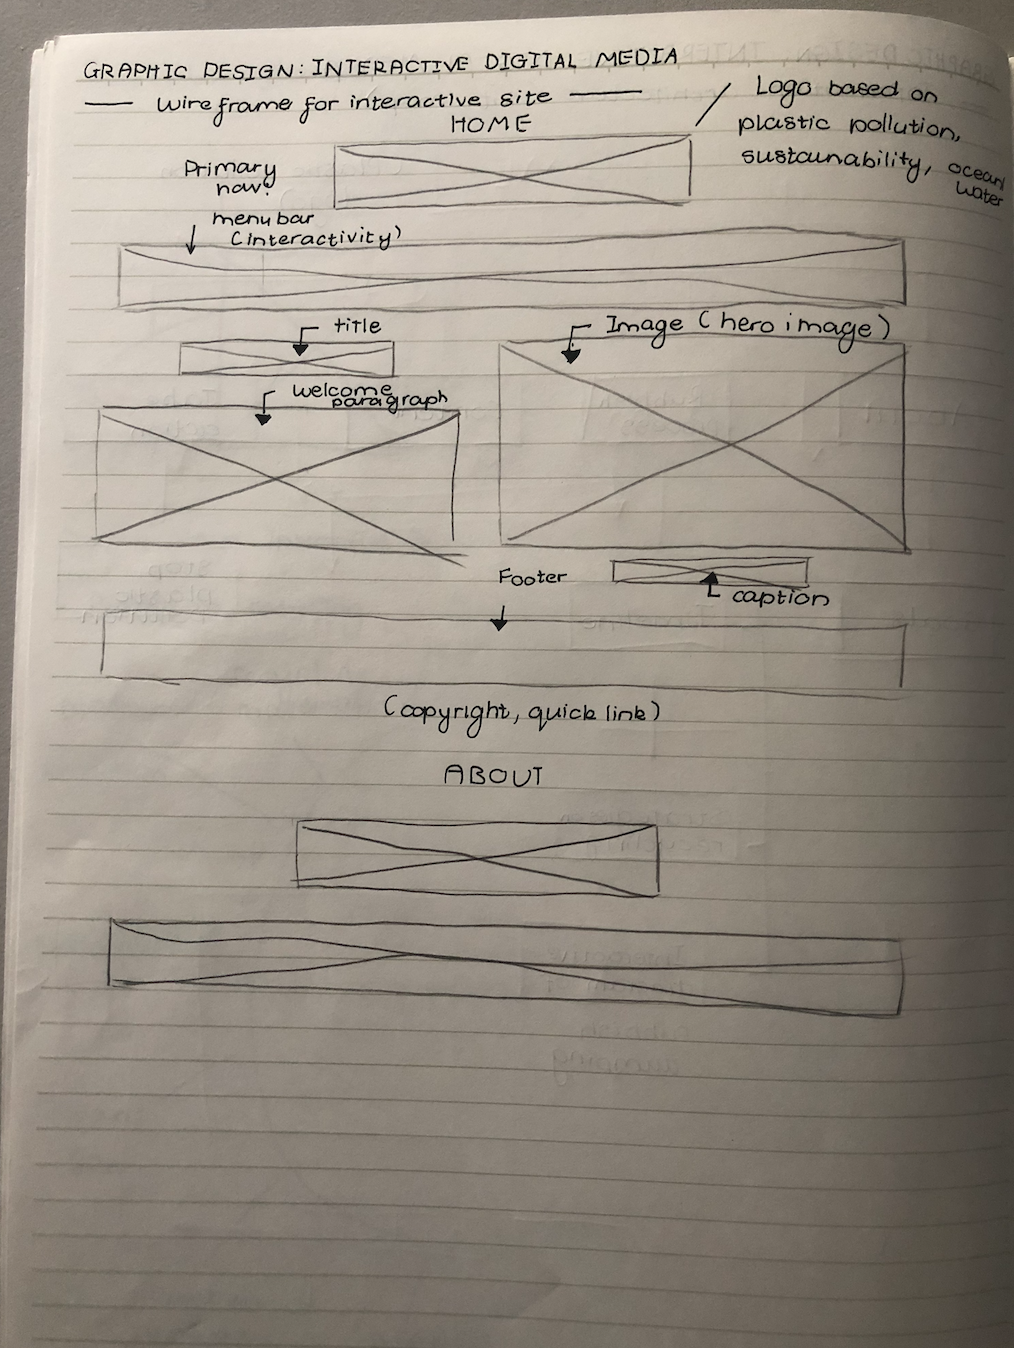 GRAPHIC DESIGN: INTERACTIVE DIGITAL MEDIA
Wireframe for interactive site
HOME
Logo based on
plastic pollution,
sustainability, ocean
water
Primary
nav:
menu bar
(interactivity)
title
Image (hero image)
welcome
paragraph
Footer
caption
(copyright, quick link)
ABOUT